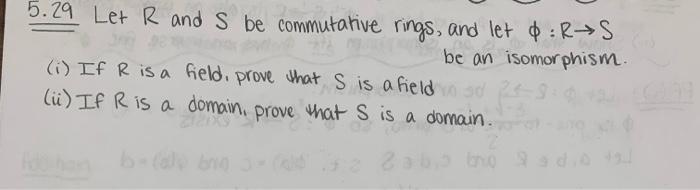 5.29 Let R and S be commutative rings, and let φ : R→S
be an isomorphism.
(i) If R is a field, prove that S is a field
(ii) If R is a domain, prove that S is a domain.